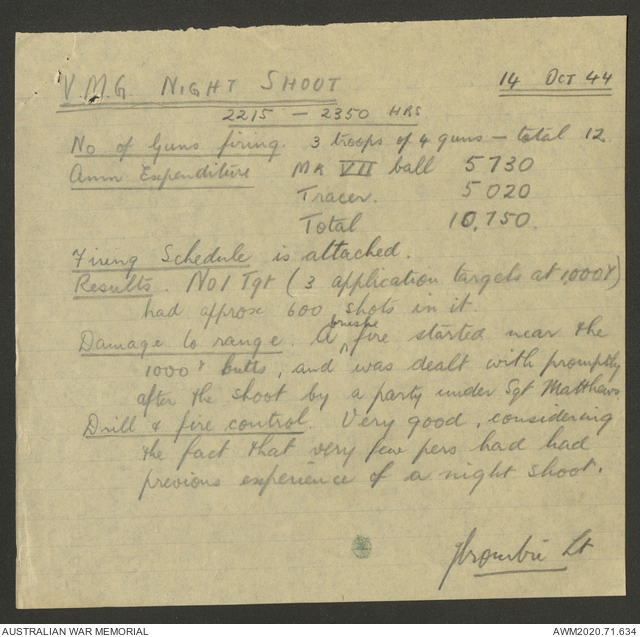 V.M.G. NIGHT SHOOT 14 OCT 44
2215 – 2350 HRS
No of Guns firing. 3 troops of 4 guns – total 12
Amm Expenditure MK VII ball 5730
Tracer. 5020
Total 10,750.
Firing Schedule is attached.
Results. No 1 Tgt (3 application targets at 1,000x)
had approx 600 shots in it.
Damage to range. A fire started near the
1000x butts, and was dealt with promptly
after the shoot by a party under Sgt Matthews
Drill & fire control. Very good, considering
the fact that very few pers had had
previous experience of a night shoot.
Lt
AUSTRALIAN WAR MEMORIAL AWM2020.71.634